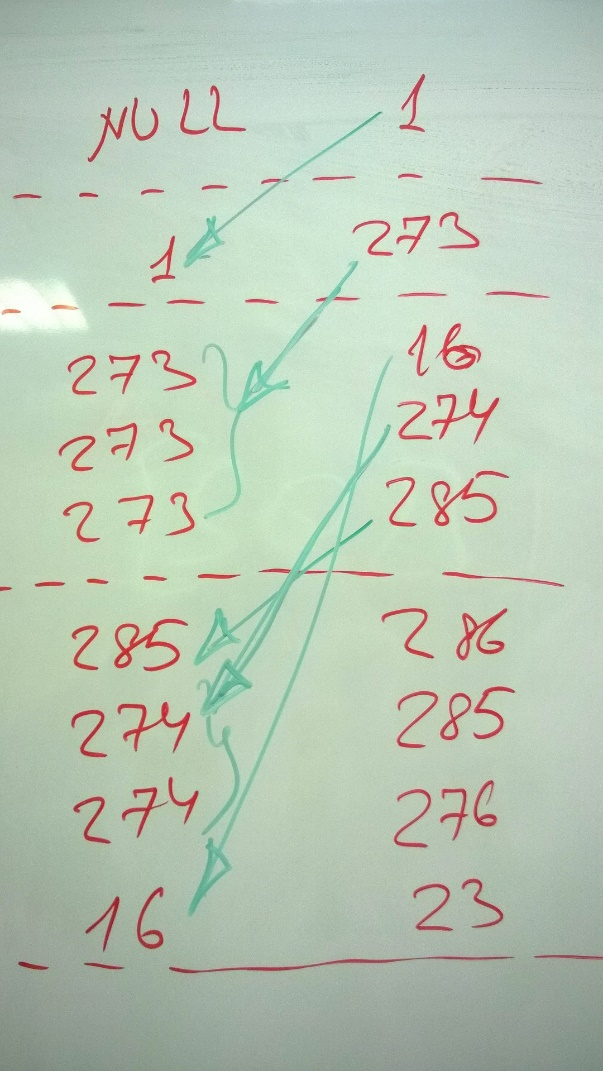 NULL 1
1 273
273 16
273 274
273 285
285 286
274 285
274 276
16 23